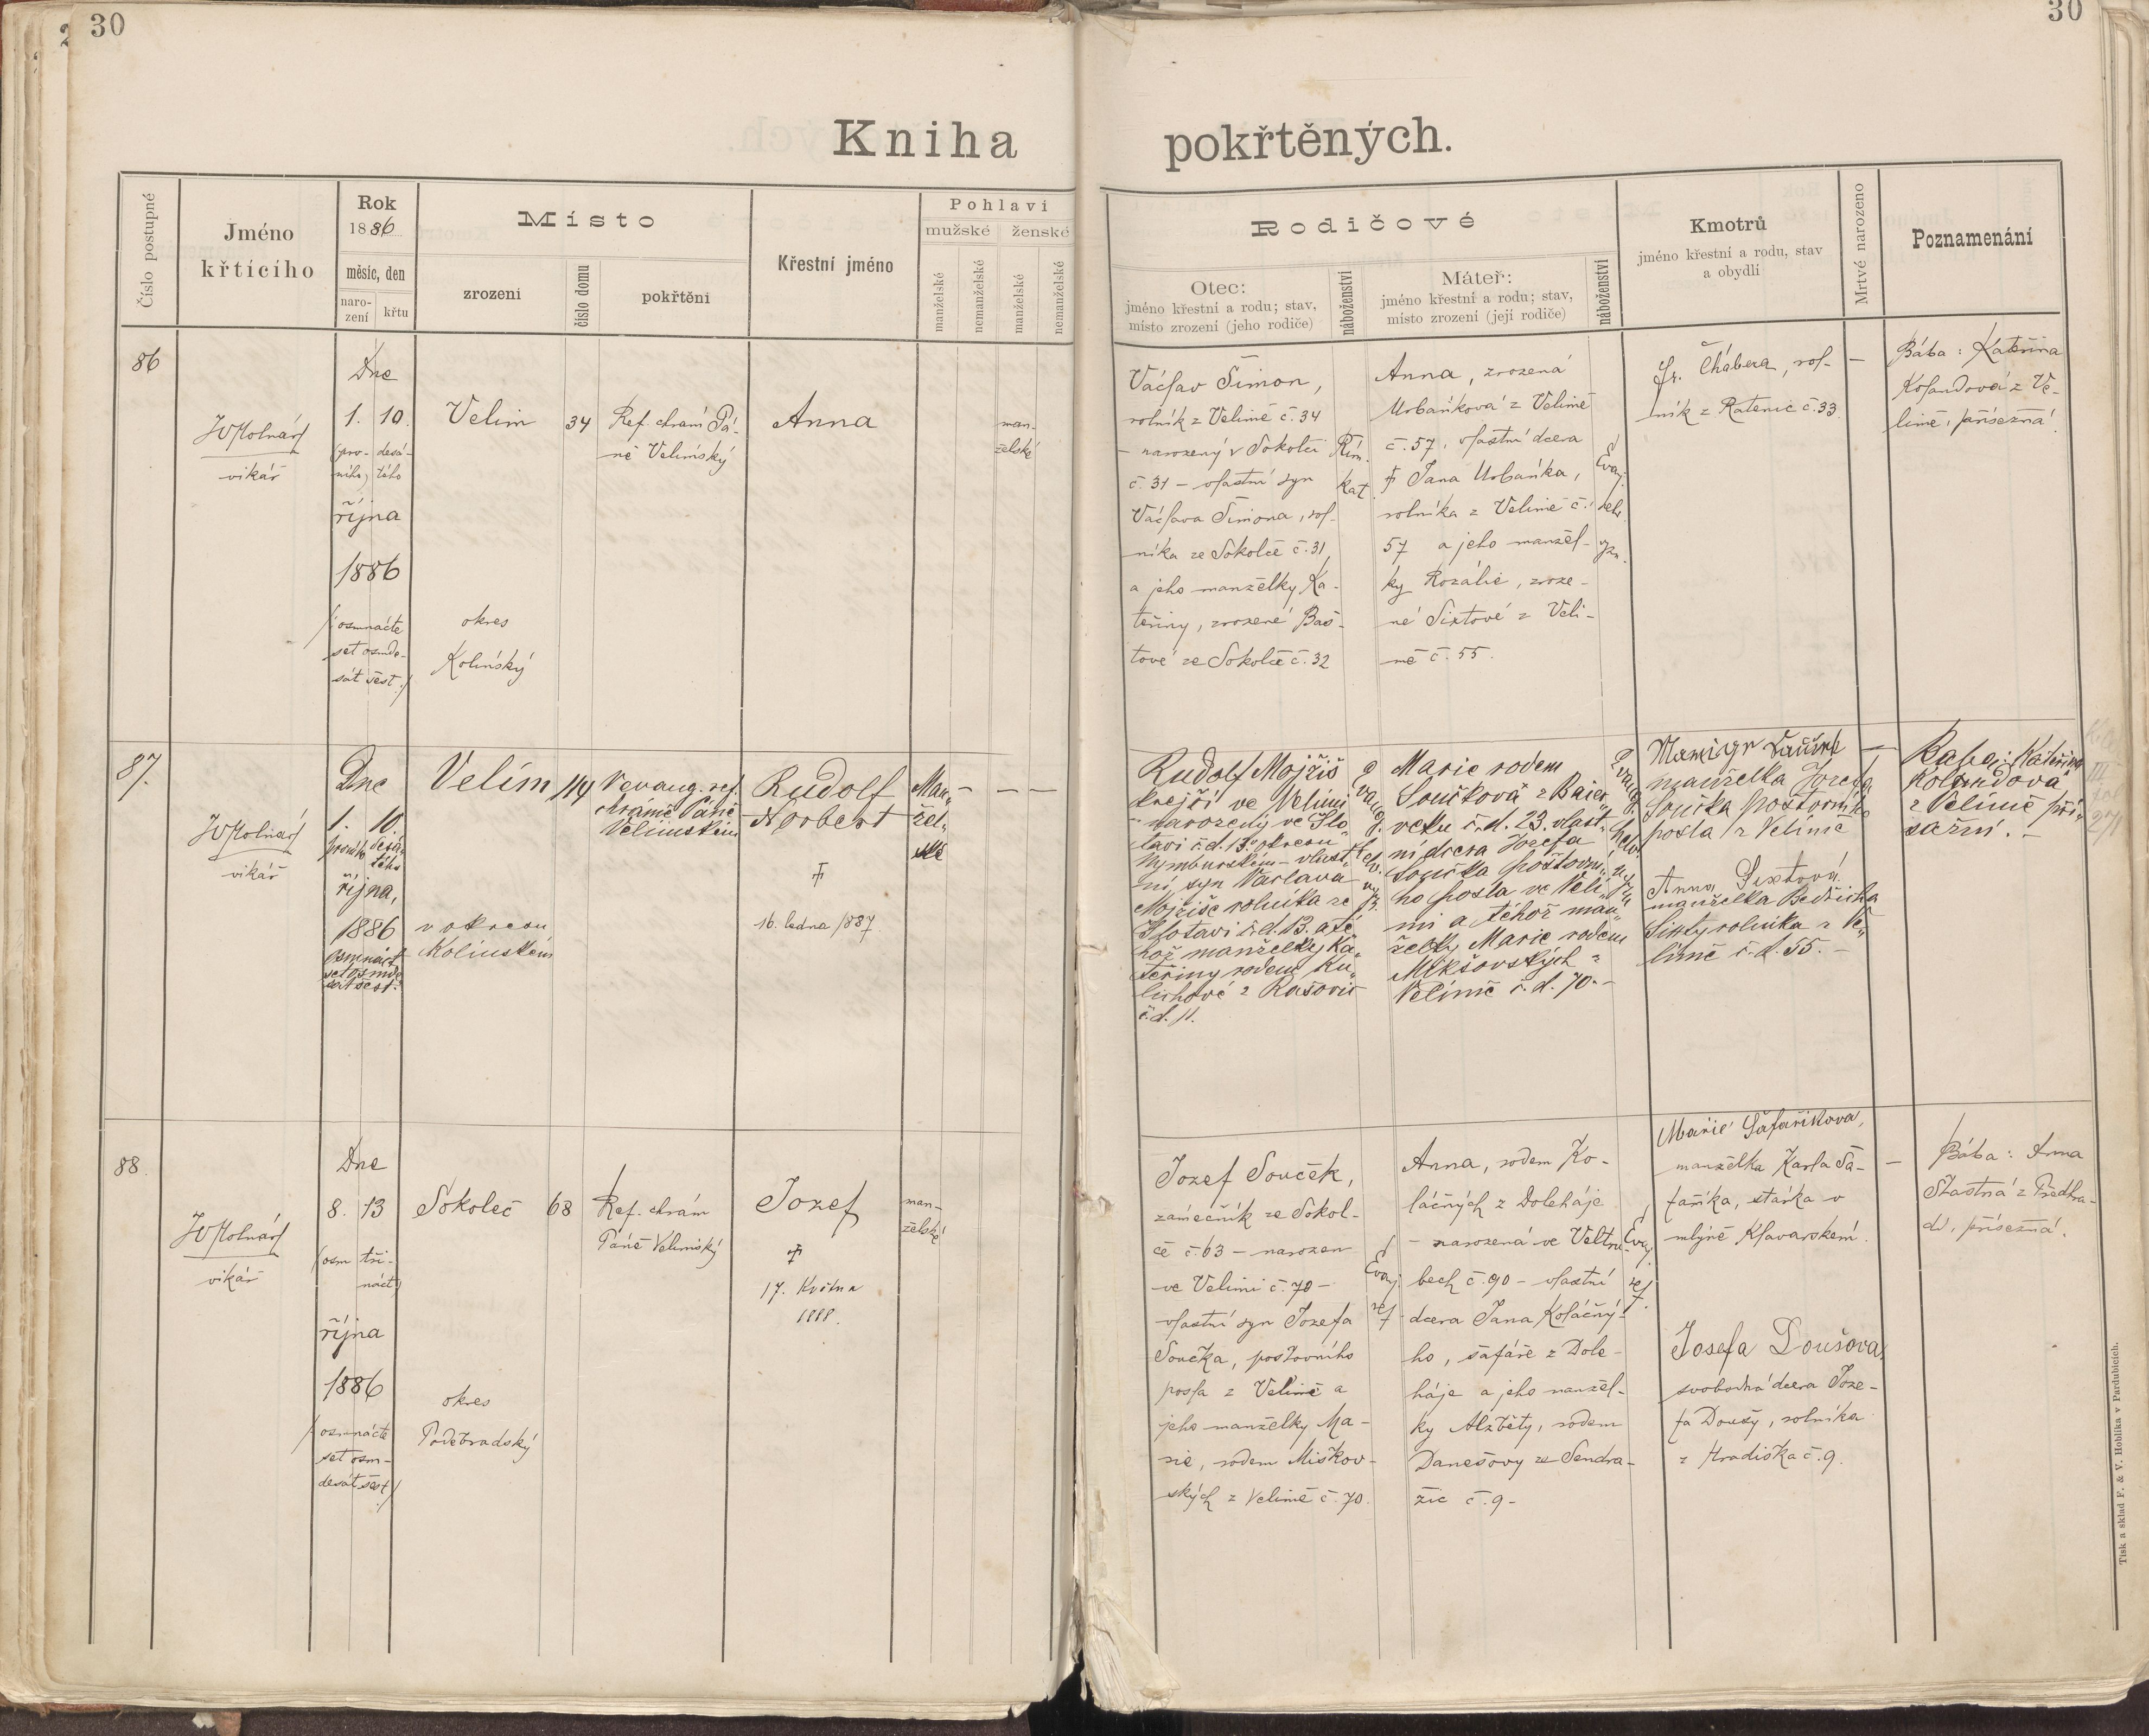 30
30
Kniha pokřtěných.
Číslo postupné
Jméno
křtícího
Rok
1886
měsíc, den
naro-
zení
křtu
Místo
zrození
číslo domu
pokřtění
Křestní jméno
Pohlaví
mužské
ženské
manželské
nemanželské
manželské
nemanželské
Rodičové
Otec:
jméno křestní a rodu; stav,
místo zrození (jeho rodiče)
náboženství
Máteř:
jméno křestní a rodu; stav,
místo zrození (její rodiče)
náboženství
Kmotrů
jméno křestní a rodu, stav
a obydlí
Mrtvé narozeno
Poznamenání
86
JVMolnár
vikář
Dne
1. 10.
(prv- desá-
ního) tého
října
1886
/:osmnácte
set osmde-
sát šest:/
Velim
okres
Kolínský
34
Ref. chrám Pá-
ně Velimský
Anna
man-
želské
Václav Šimon,
rolník z Velimě č. 34
– narozený v Sokolči
č. 31 – vlastní syn
Václava Šimona, rol-
níka ze Sokolče č. 31,
a jeho manželky Ka-
teřiny, zrozené Baš-
tové ze Sokolče č. 32
Řím.
kat.
Anna, zrozená
Urbánková z Velimě
č. 57, vlastní dcera
† Jana Urbánka,
rolníka z Velimě č.
57 a jeho manžel-
ky Rozálie, zroze-
né Sixtové z Veli-
mě č. 55.
Evanj.
helv.
vyzn.
Fr. Čhábera, rol-
ník z Ratenic č. 33.
—
Bába: Kateřina
Kolandová z Ve-
limě, přísežná.
87.
JVMolnár
vikář
Dne
1. 10.
prvního desá-
tého
října,
1886
osmnáct
set osmde
sát šest.
Velím
v okresu
Kolínském
114
V evang. ref.
chrámě Páně
Velimském
Rudolf
Norbert
†
16. ledna 1887
Man„
žel„
ské
— — —
Rudolf Mojžíš
krejčí ve Velimi
– narozený ve Hlo„
tavi č.d. 13. okresu
Nymburském – vlast„
ní syn Václava
Mojžíše rolníka ze
Hlotavi č.d. 13. a té„
hož manželky Ka„
teřiny rodem Ku„
lichové z Rašovic
č.d. 11.
Evang.
helv.
vyz.
Marie rodem
Součková z Baier„
veku č.d. 23. vlast„
ní dcera Jozefa
Součka poštovní„
ho posla ve Veli„
mi a téhož man„
želky Marie rodem
Mikšovských z
Velimě č.d. 70. –
Evang.
helv.
vyz.
manželka Jozefa
Součka poštovního
posla z Velimě
Anna Sixtová
manželka Bedřicha
Sixty rolníka z Ve„
limě č.d. 55. –
—
Baba: Kateřina
Kolandová
z Velimě pří„
sažní. –
III
fol
27
88.
JVMolnár
vikář
Dne
8. 13
(osm tři-
náct)
října
1886
/:osmnácte
set osm-
desát šest:/
Sokoleč
okres
Poděbradský
68
Ref. chrám
Páně Velimský
Jozef
†
17. Května
1888.
man-
želské
Jozef Souček,
zámečník ze Sokol-
če č. 63 – narozen
ve Velimi č. 70 –
vlastní syn Jozefa
Součka, poštovního
posla z Velimě a
jeho manželky Ma-
rie, rodem Miškov-
ských z Velimě č. 70.
Evanj.
ref.
Anna, rodem Ko-
láčných z Doleháje
– narozená ve Veltru-
bech č. 90 – vlastní
dcera Jana Koláčný-
ho, šafáře z Dole-
háje a jeho manžel-
ky Alžběty, rodem
Danešovy ze Sendra-
žic č. 9 –
Evanj.
ref.
Marie Šafaříkova,
manželka Karla Ša-
faříka, stárka v
mlýně Klavarském.
Josefa Doušova,
svobodná dcera Joze-
fa Doušy, rolníka
z Hradišťka č. 9.
—
Bába: Anna
Šťastná z Předhra-
dí, přísežná.
Tisk a sklad F. & V. Hoblíka v Pardubicích.